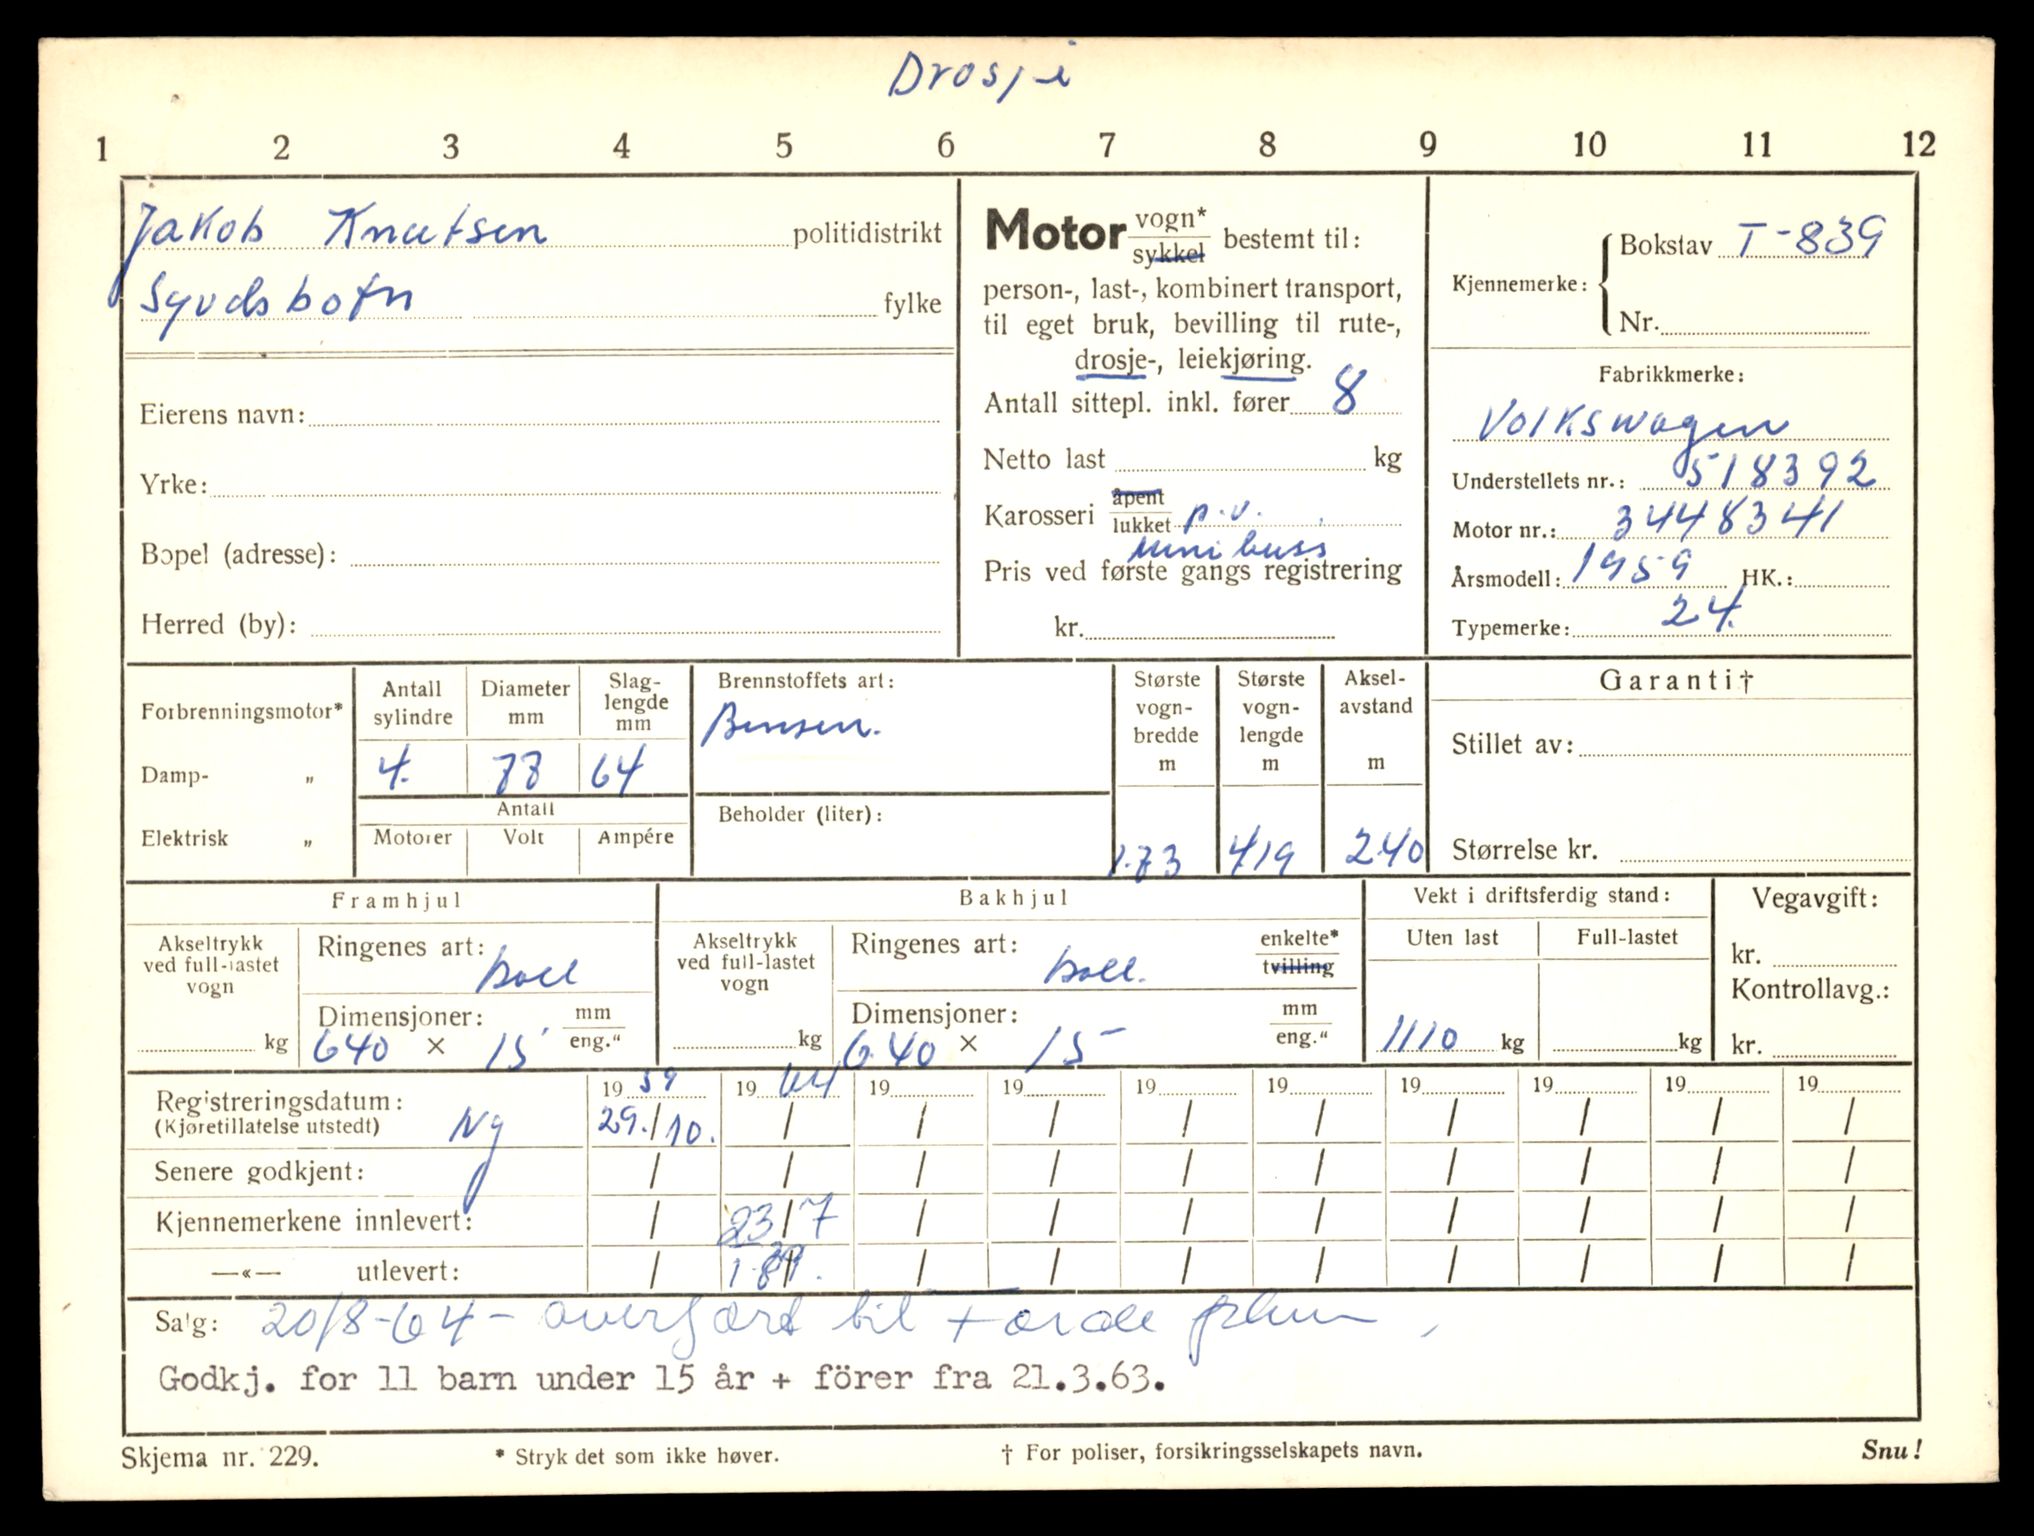 Drosje
1 2 3 4 5 6 7 8 9 10 11 12
Jakob Knutsen politidistrikt
Syvdsbotn fylke
Eierens navn:
Yrke:
Bopel (adresse):
Herred (by):
Motor vogn* sykkel bestemt til:
person-, last-, kombinert transport,
til eget bruk, bevilling til rute-,
drosje-, leiekjøring.
Antall sittepl. inkl. fører 8
Netto last kg
Karosseri åpent lukket p.v.
minibuss
Pris ved første gangs registrering
kr.
Kjennemerke: Bokstav T-839
Nr.
Fabrikkmerke:
Volkswagen
Understellets nr.: 518392
Motor nr.: 3448341
Årsmodell: 1959 HK.:
Typemerke: 24.
Forbrenningsmotor*
Damp- "
Elektrisk "
Antall sylindre
4.
Diameter mm
77
Slag-lengde mm
64
Antall
Motorer Volt Ampére
Brennstoffets art:
Bensin.
Beholder (liter):
Største vogn-bredde m
1.73
Største vogn-lengde m
419
Aksel-avstand m
240
Garanti†
Stillet av:
Størrelse kr.
Framhjul
Akseltrykk ved full-lastet vogn
kg
Ringenes art:
boll
Dimensjoner: mm eng."
640 × 15
Bakhjul
Akseltrykk ved full-lastet vogn
kg
Ringenes art: enkelte* tvilling
boll.
Dimensjoner: mm eng."
6.40 × 15
Vekt i driftsferdig stand:
Uten last Full-lastet
1110 kg kg
Vegavgift:
kr.
Kontrollavg.:
kr.
Registreringsdatum: 19 59 19 64 19 19 19 19 19 19 19 19
(Kjøretillatelse utstedt) Ny 29./10. / / / / / / / / /
Senere godkjent: / / / / / / / / / /
Kjennemerkene innlevert: / 23/7 / / / / / / / /
—«— utlevert: / / / / / / / / /
Salg: 20/8-64 - overført til
Godkj. for 11 barn under 15 år + förer fra 21.3.63.
Skjema nr. 229.
* Stryk det som ikke høver.
† For poliser, forsikringsselskapets navn.
Snu!